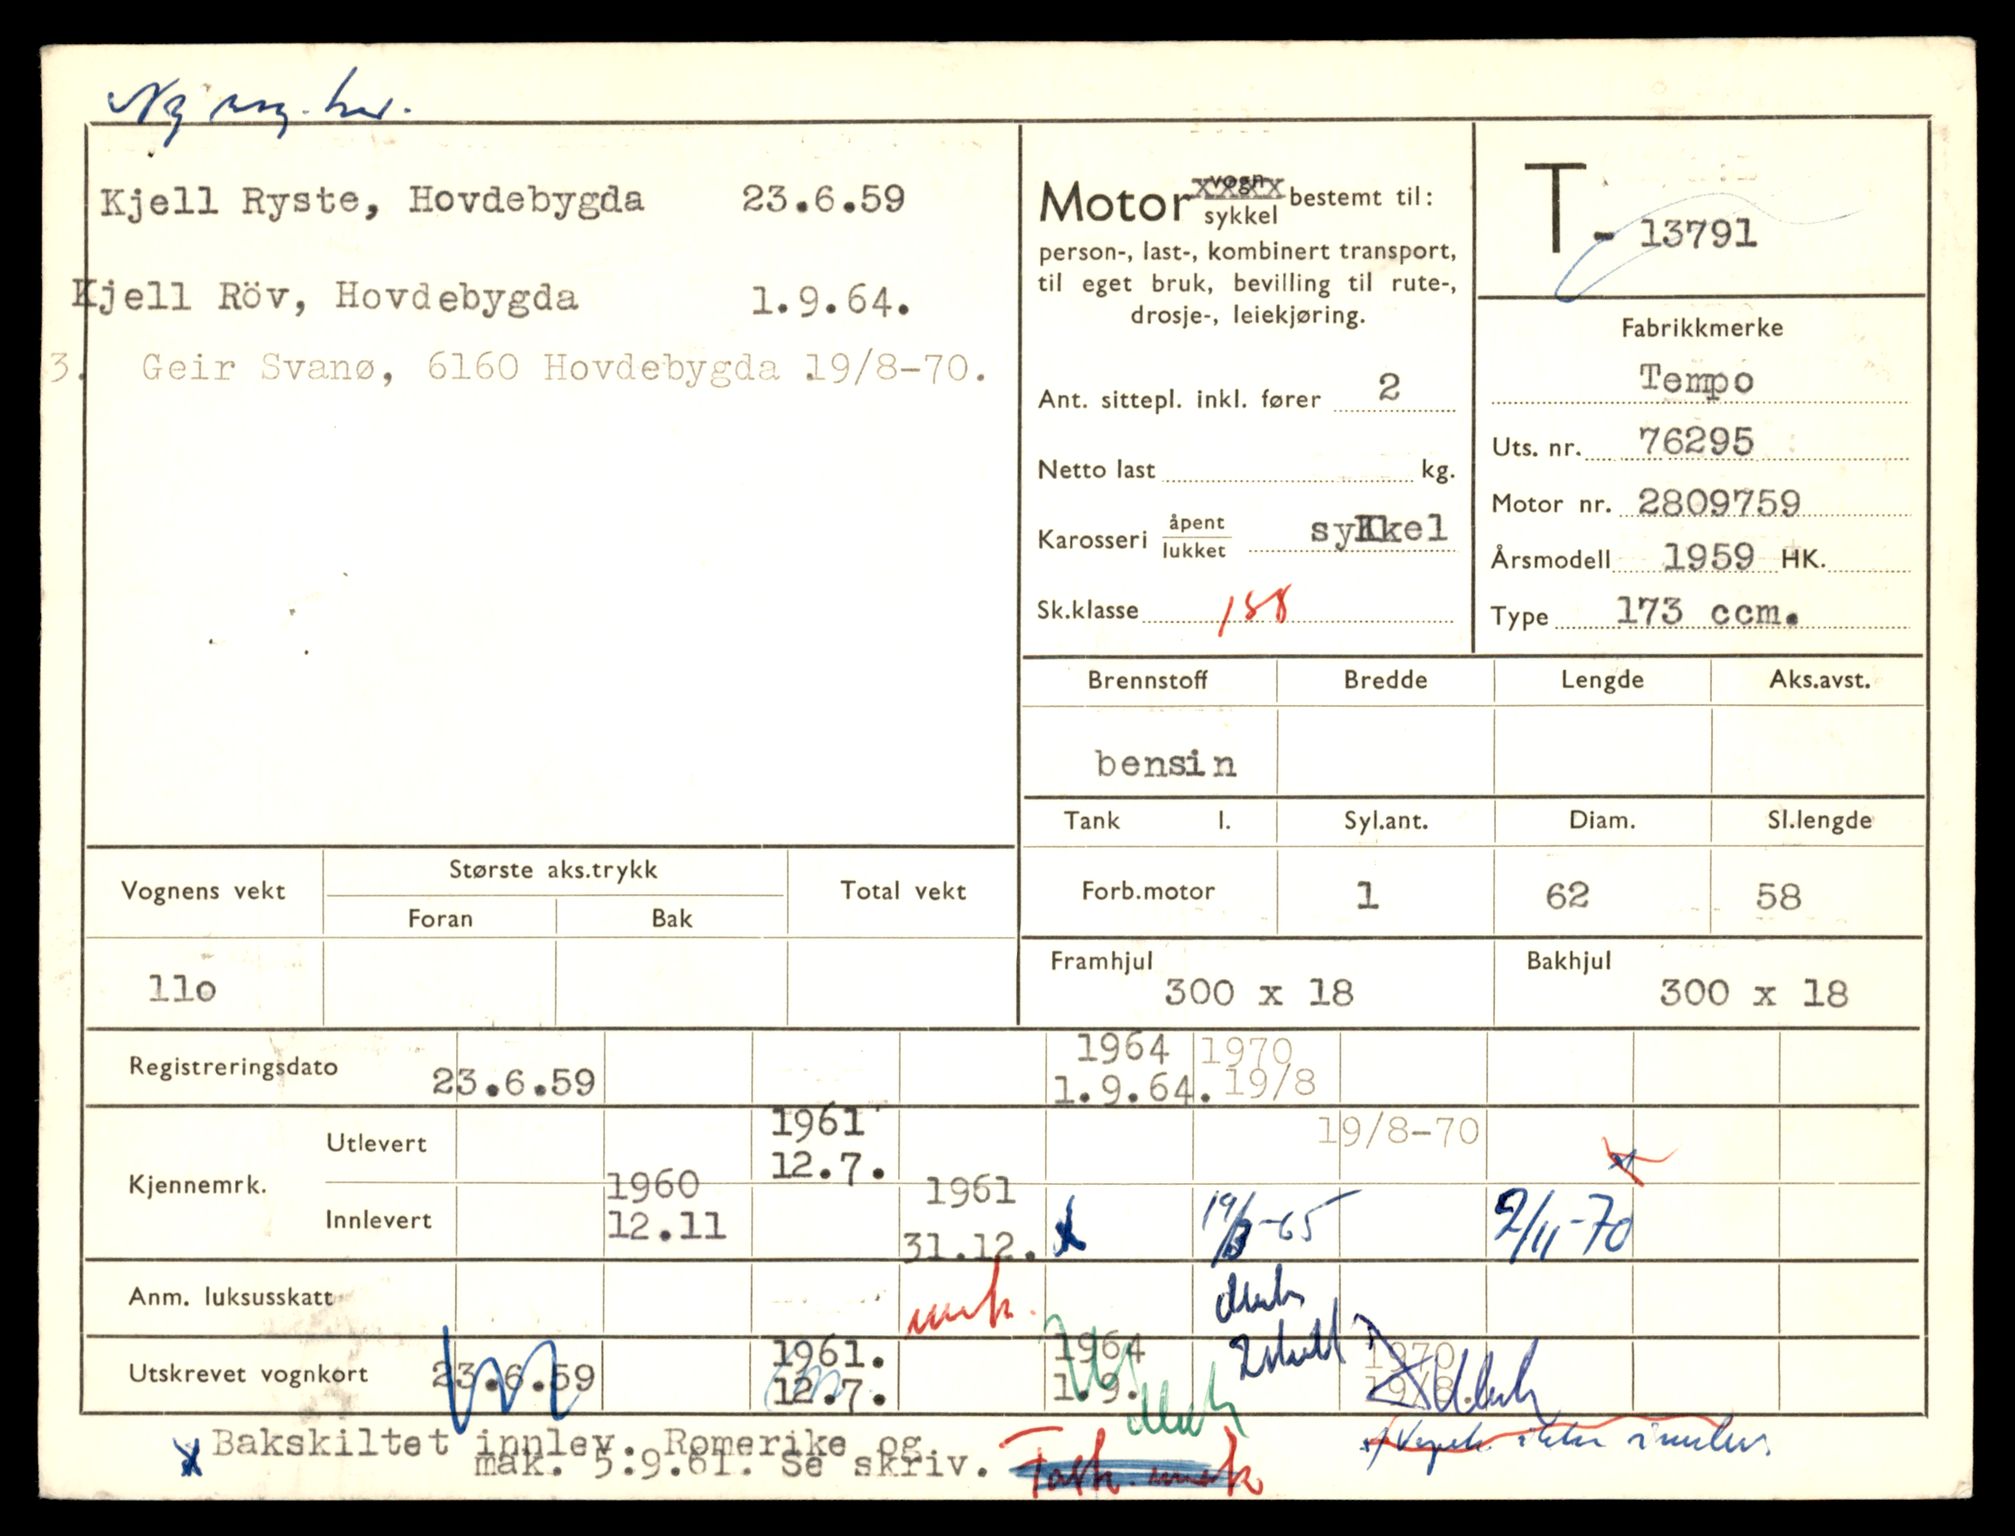 Kjell Ryste, Hovdebygda 23.6.59
Kjell Röv, Hovdebygda 1.9.64.
3. Geir Svanø, 6160 Hovdebygda 19/8-70.
Motor vogn sykkel bestemt til:
person-, last-, kombinert transport,
til eget bruk, bevilling til rute-,
drosje-, leiekjøring.
Ant. sittepl. inkl. fører 2
Netto last kg.
Karosseri åpent lukket sykkel
Sk.klasse 188
T - 13791
Fabrikkmerke
Tempo
Uts. nr. 76295
Motor nr. 2809759
Årsmodell 1959 HK.
Type 173 ccm.
Brennstoff Bredde Lengde Aks.avst.
bensin
Tank l. Syl.ant. Diam. Sl.lengde
Forb.motor 1 62 58
Framhjul 300 x 18 Bakhjul 300 x 18
Vognens vekt Største aks.trykk Total vekt
Foran Bak
110
Registreringsdato 23.6.59 1964 1.9.64. 1970 19/8
Kjennemrk.
Utlevert 1961 12.7. 19/8-70
Innlevert 1960 12.11 1961 31.12. x 19/3-65 2/11-70
Anm. luksusskatt
Utskrevet vognkort 23.6.59 1961. 12.7. 1964 1.9. 1970 19/8.
x Bakskiltet innlev. Romerike og
mak. 5.9.61. Se skriv.